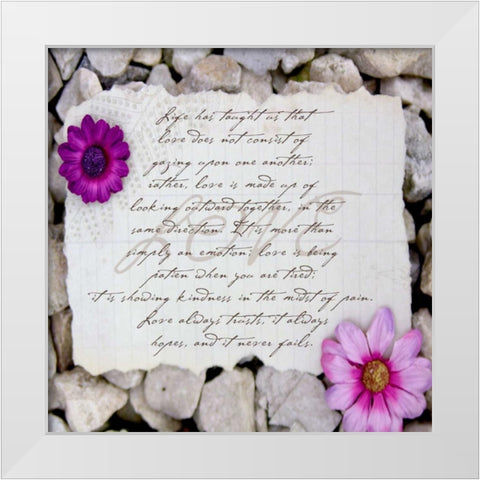 Life has taught us that
love does not consist of
gazing upon one another;
rather, love is made up of
looking outward together, in the
same direction. It is more than
simply an emotion; love is being
patien when you are tired;
it is showing kindness in the midst of pain.
Love always trusts, it always
hopes, and it never fails.
LOVE